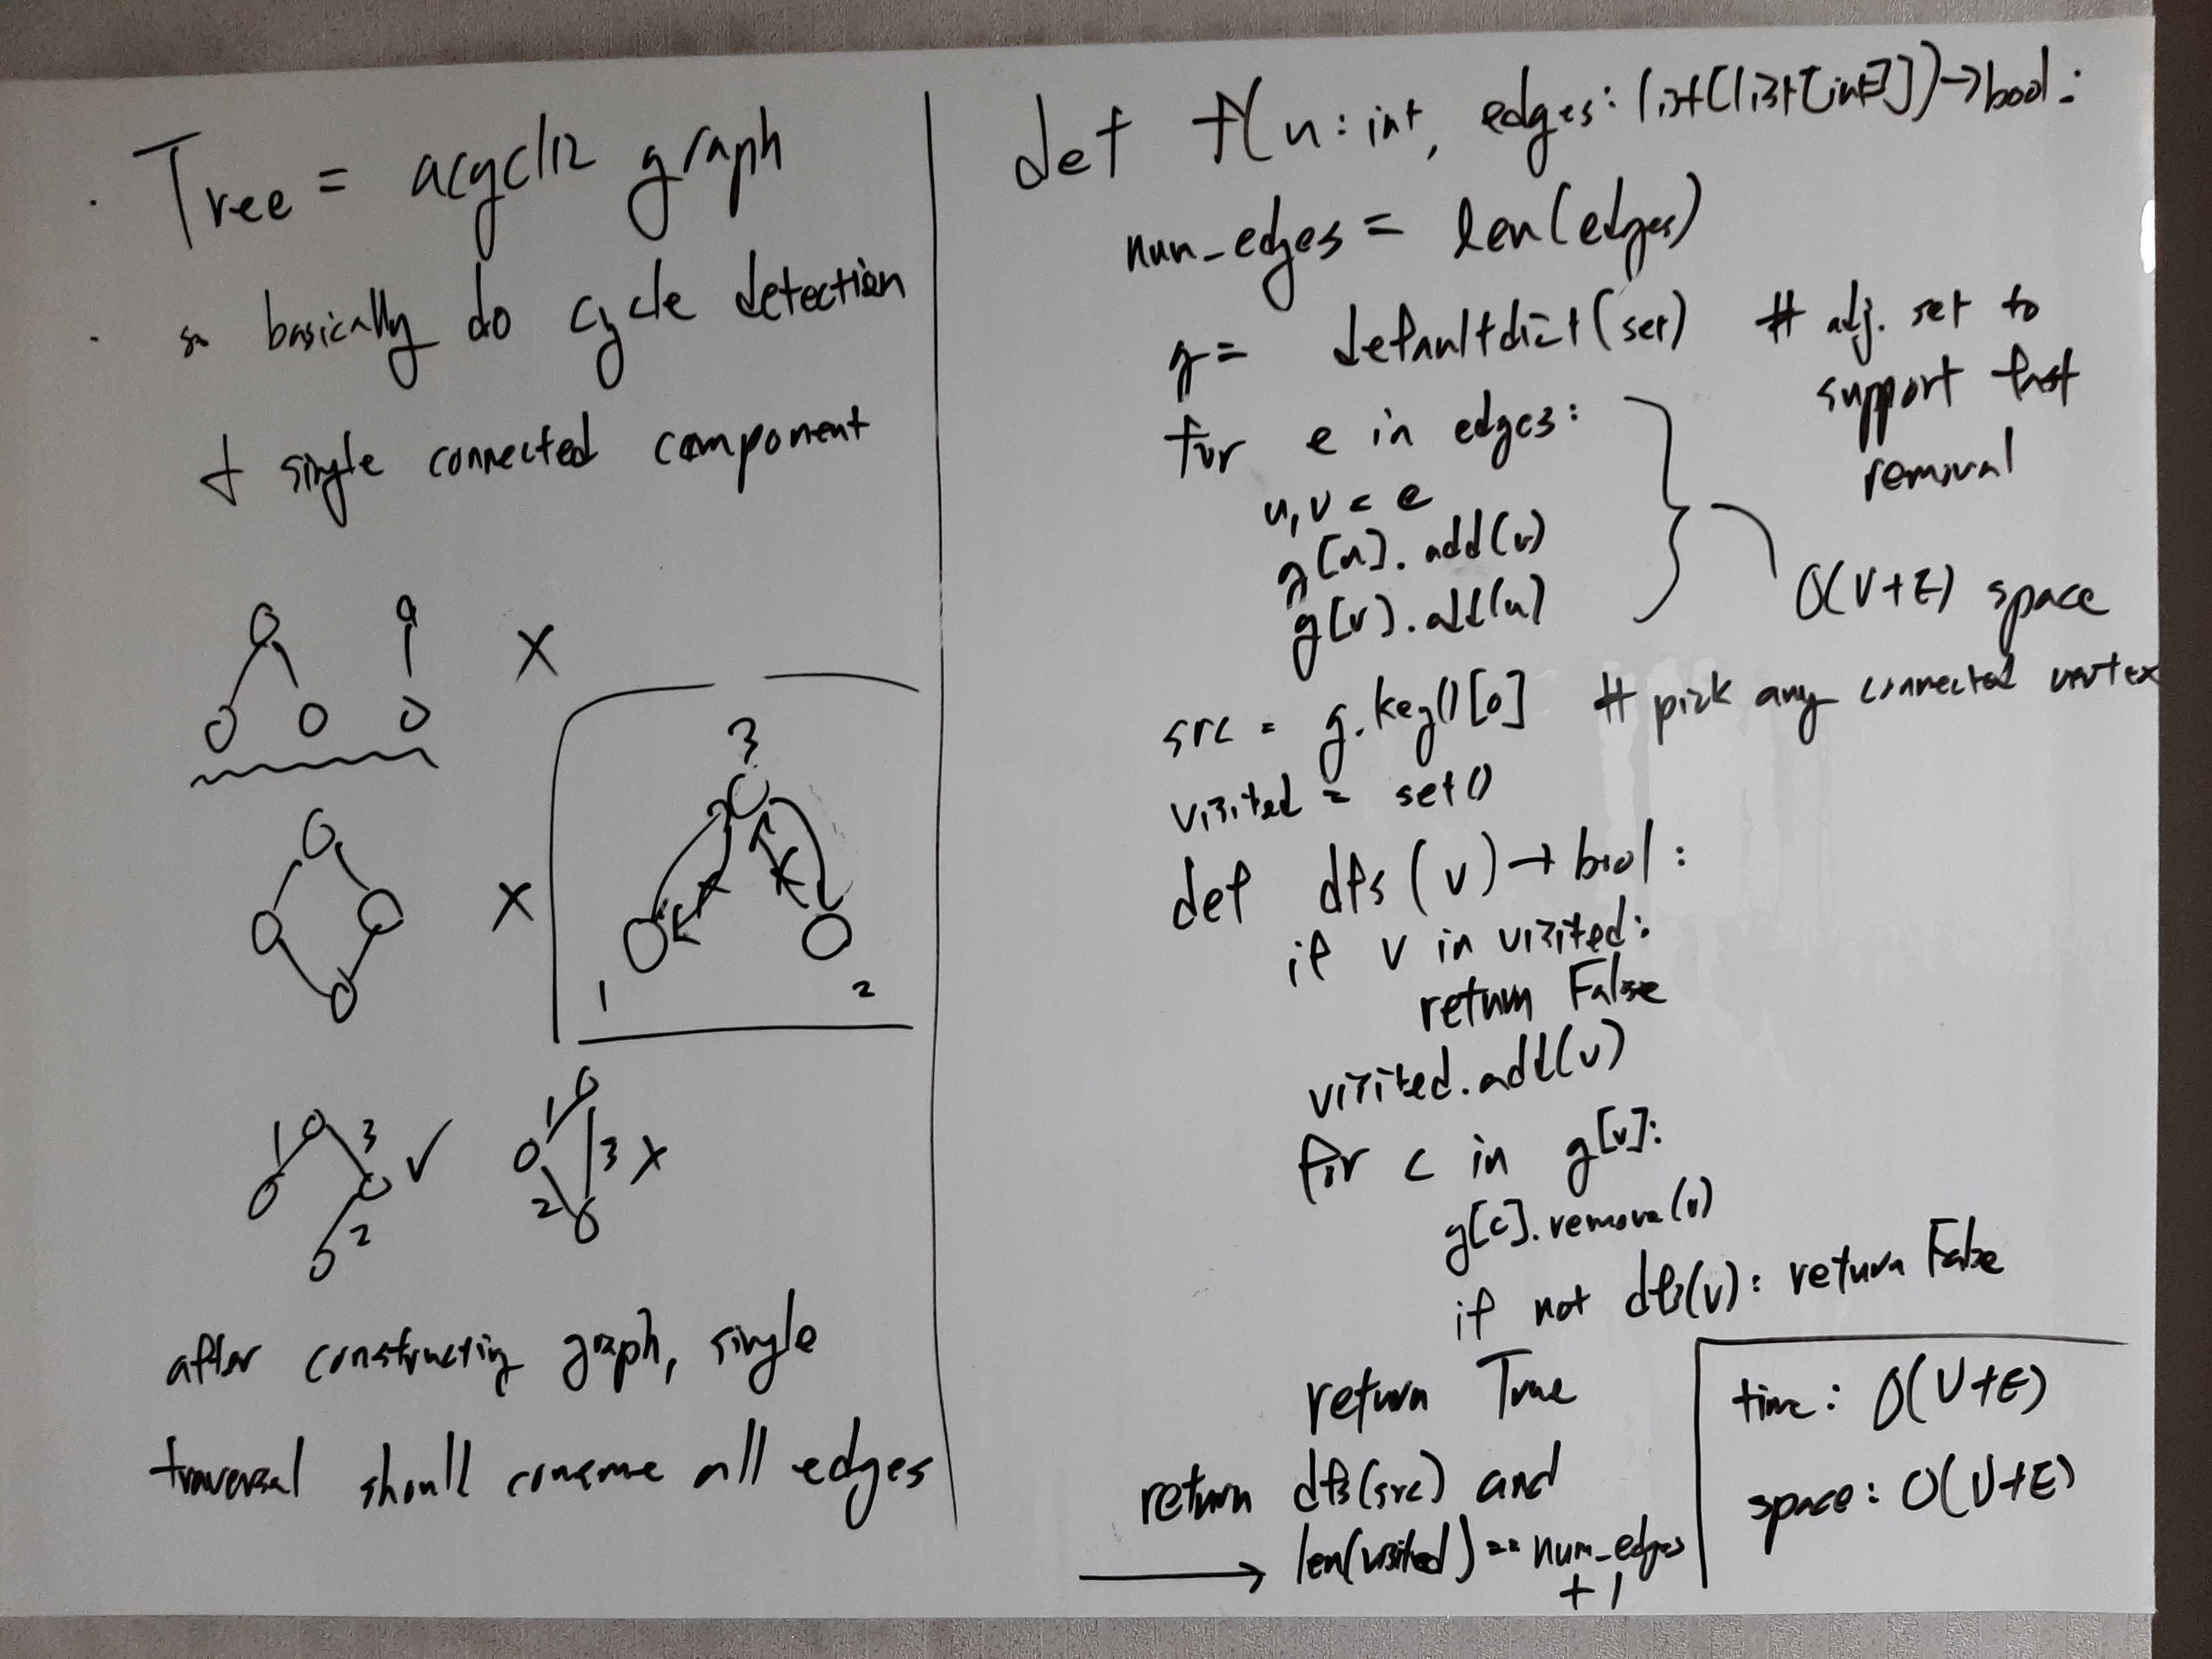 . Tree = acyclic graph
. so basically do cycle detection
+ single connected component
X
3
X
1 2
1 3 ✓ 1 3 X
2 2
after constructing graph, single
traversal should consume all edges
def f(n: int, edges: list[list[int]]) → bool:
num_edges = len(edges)
g = defaultdict(set) # adj. set to
support fast
removal
for e in edges:
u, v = e
g[u].add(v)
g[v].add(u)
O(V+E) space
src = g.key()[0] # pick any connected vertex
visited = set()
def dfs(v) → bool:
if v in visited:
return False
visited.add(v)
for c in g[v]:
g[c].remove(v)
if not dfs(v): return False
return True
return dfs(src) and
→ len(visited) == num_edges
+ 1
time: O(V+E)
space: O(V+E)